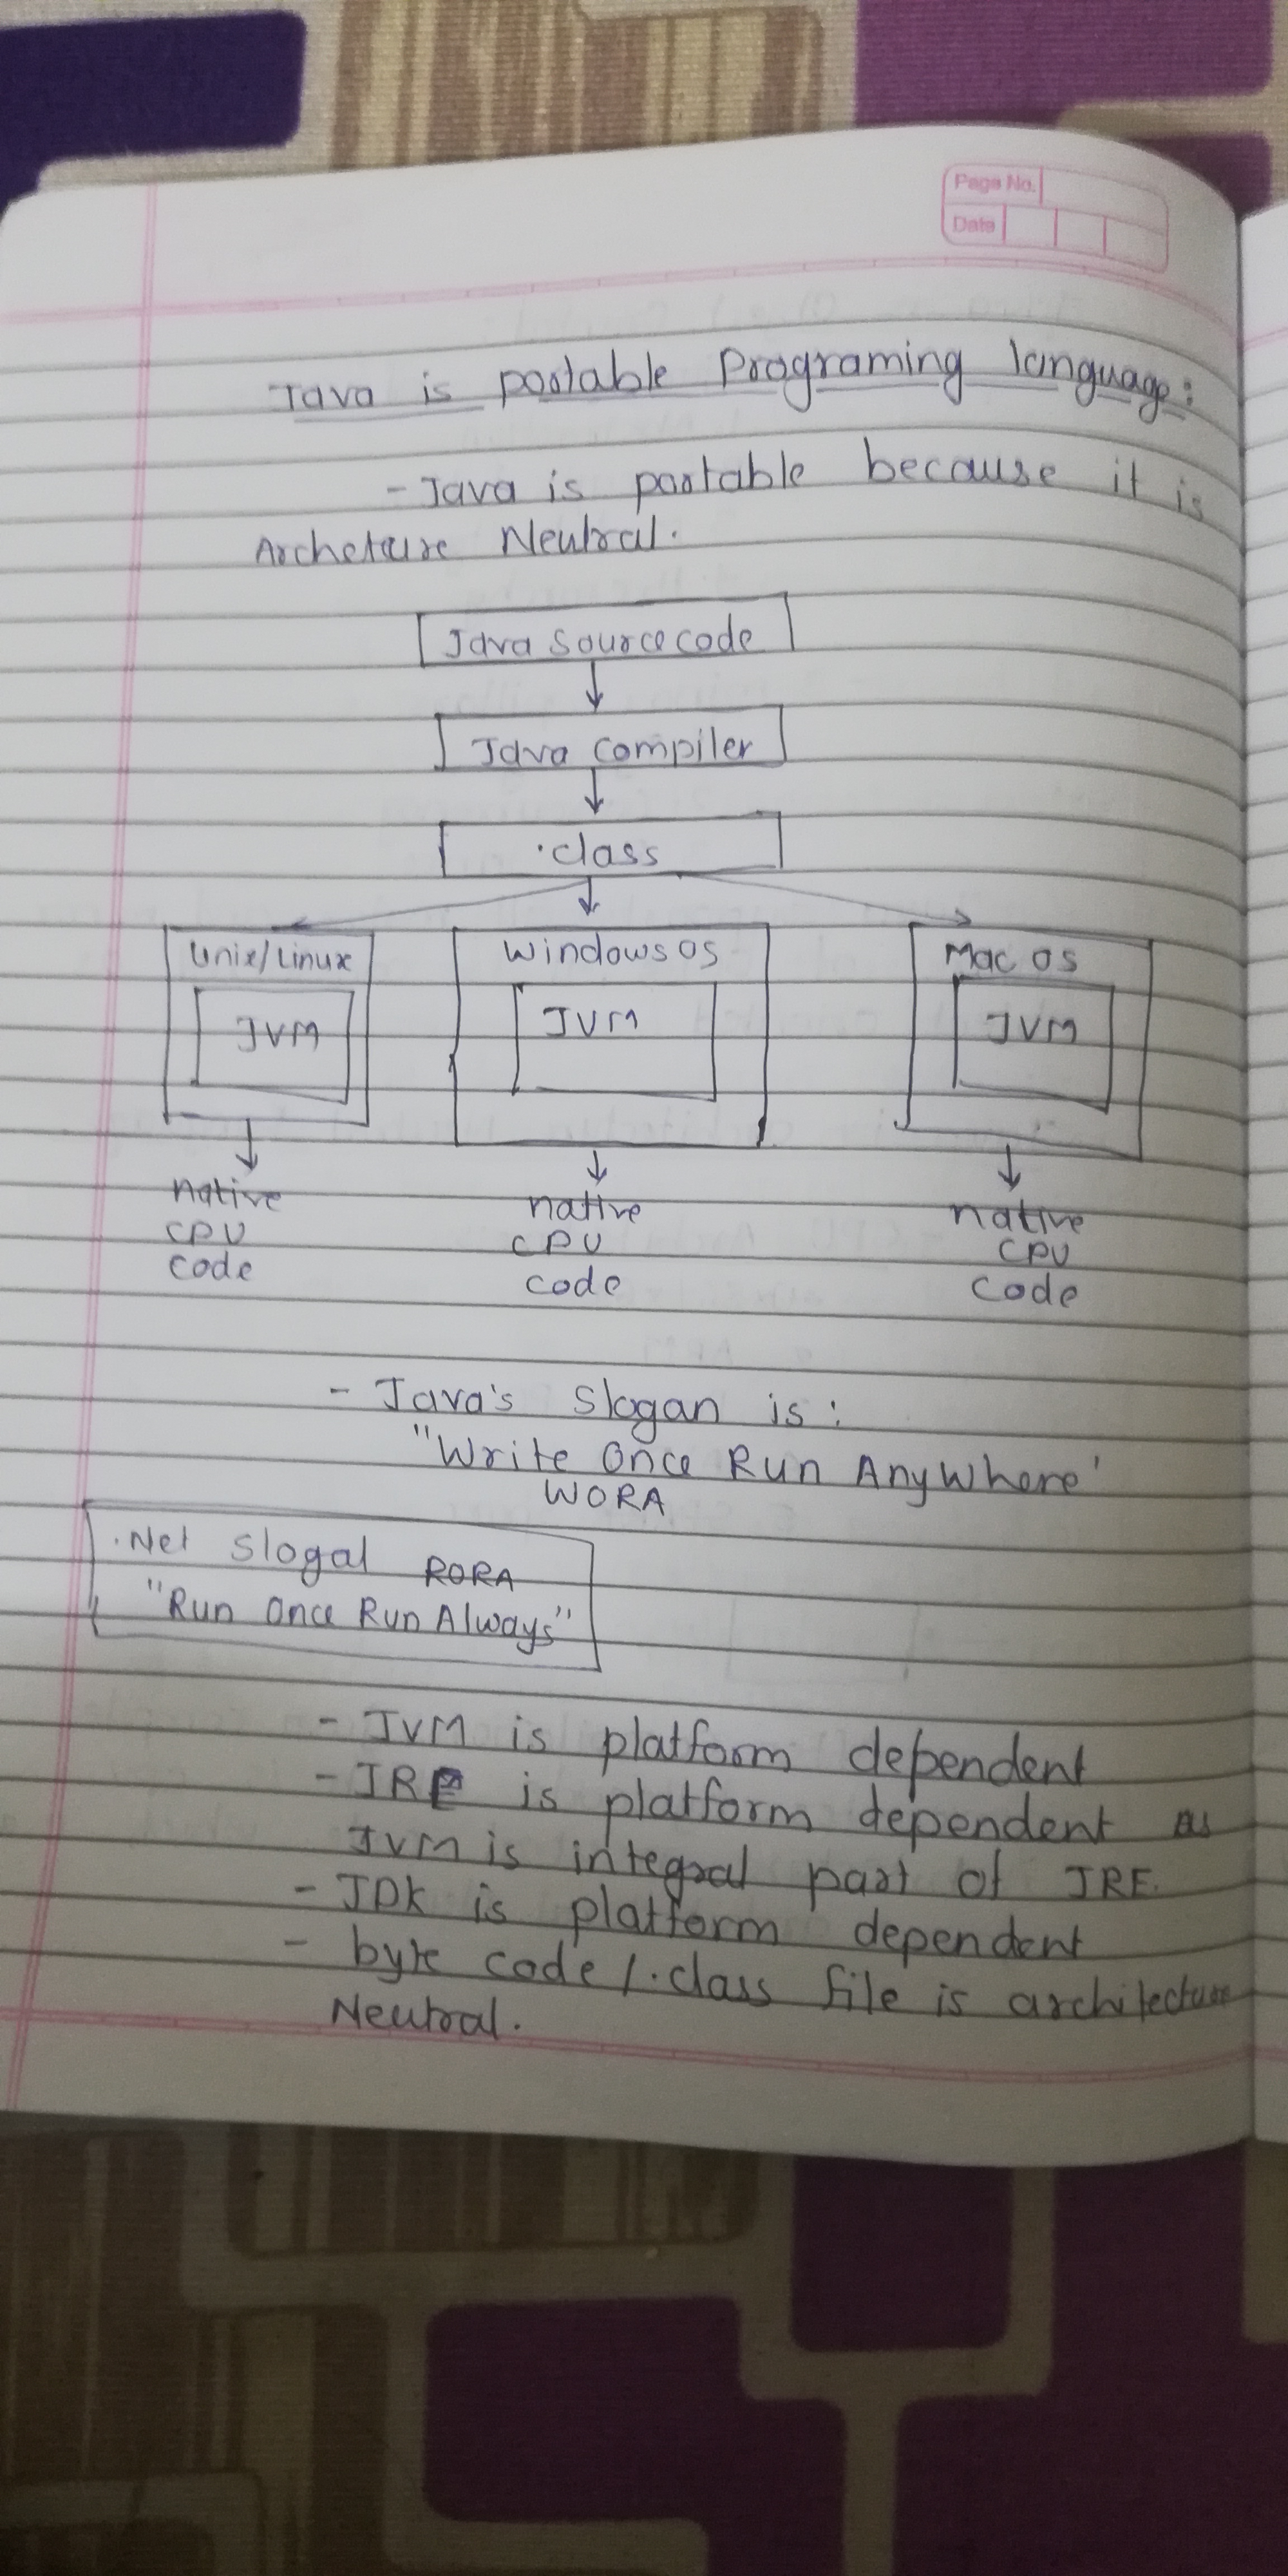 Page No.
Date
Java is portable Programing language:
- Java is portable because it is
Archeture Neutral.
Java source code
Java compiler
.class
Unix/Linux Windows OS Mac OS
JVM JVM JVM
native native native
CPU CPU CPU
code code code
- Java's Slogan is:
"Write Once Run AnyWhere'
WORA
.Net Slogal RORA
"Run Once Run Always"
- JVM is platform dependent
- JRE is platform dependent as
JVM is integral part of JRE.
- JDK is platform dependent
- byte code/.class file is architecture
Neutral.